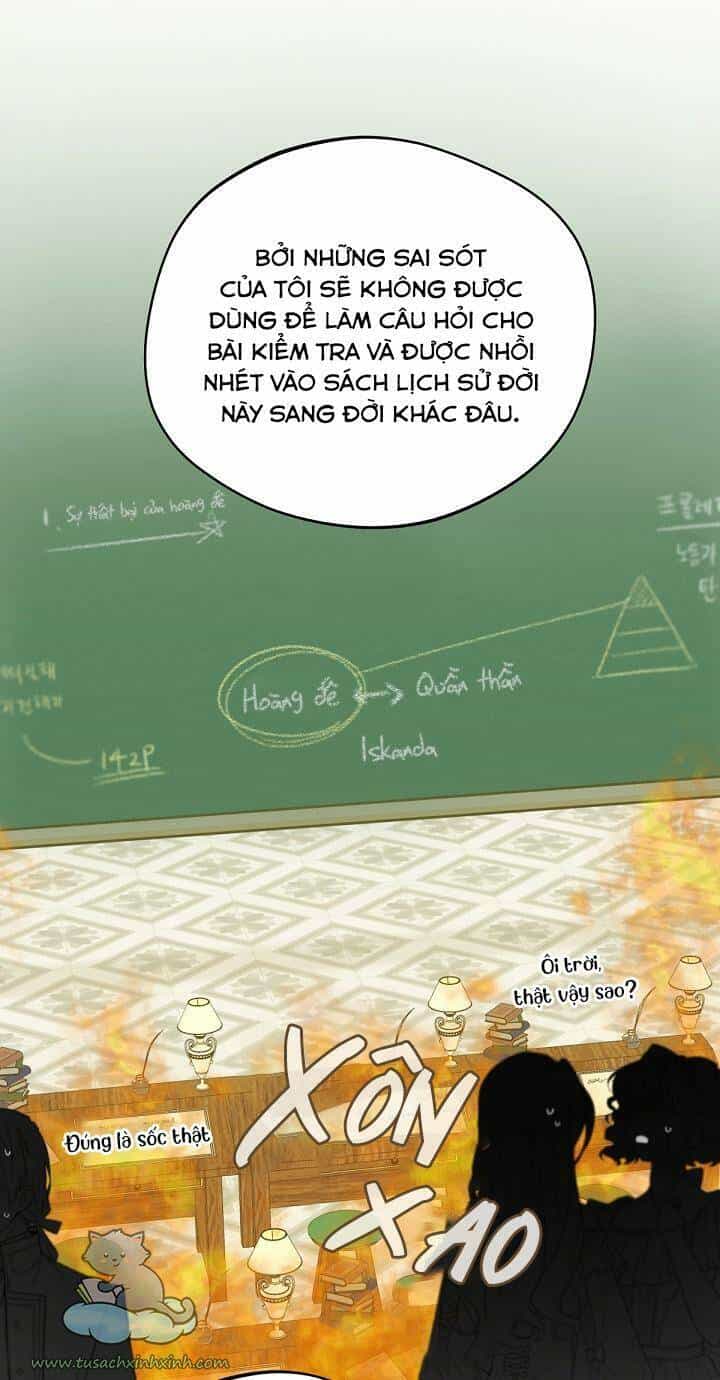 BỞI NHỮNG SAI SÓT
CỦA TÔI SẼ KHÔNG ĐƯỢC
DÙNG ĐỂ LÀM CÂU HỎI CHO
BÀI KIỂM TRA VÀ ĐƯỢC NHỒI
NHÉT VÀO SÁCH LỊCH SỬ ĐỜI
NÀY SANG ĐỜI KHÁC ĐÂU.
1. Sự thất bại của hoàng đế
프롤레
Hoàng đế <--> Quần thần
Iskanda
142P
Ôi trời,
thật vậy sao?
XÔN
Đúng là sốc thật
XAO
www.tusachxinhxinh.com